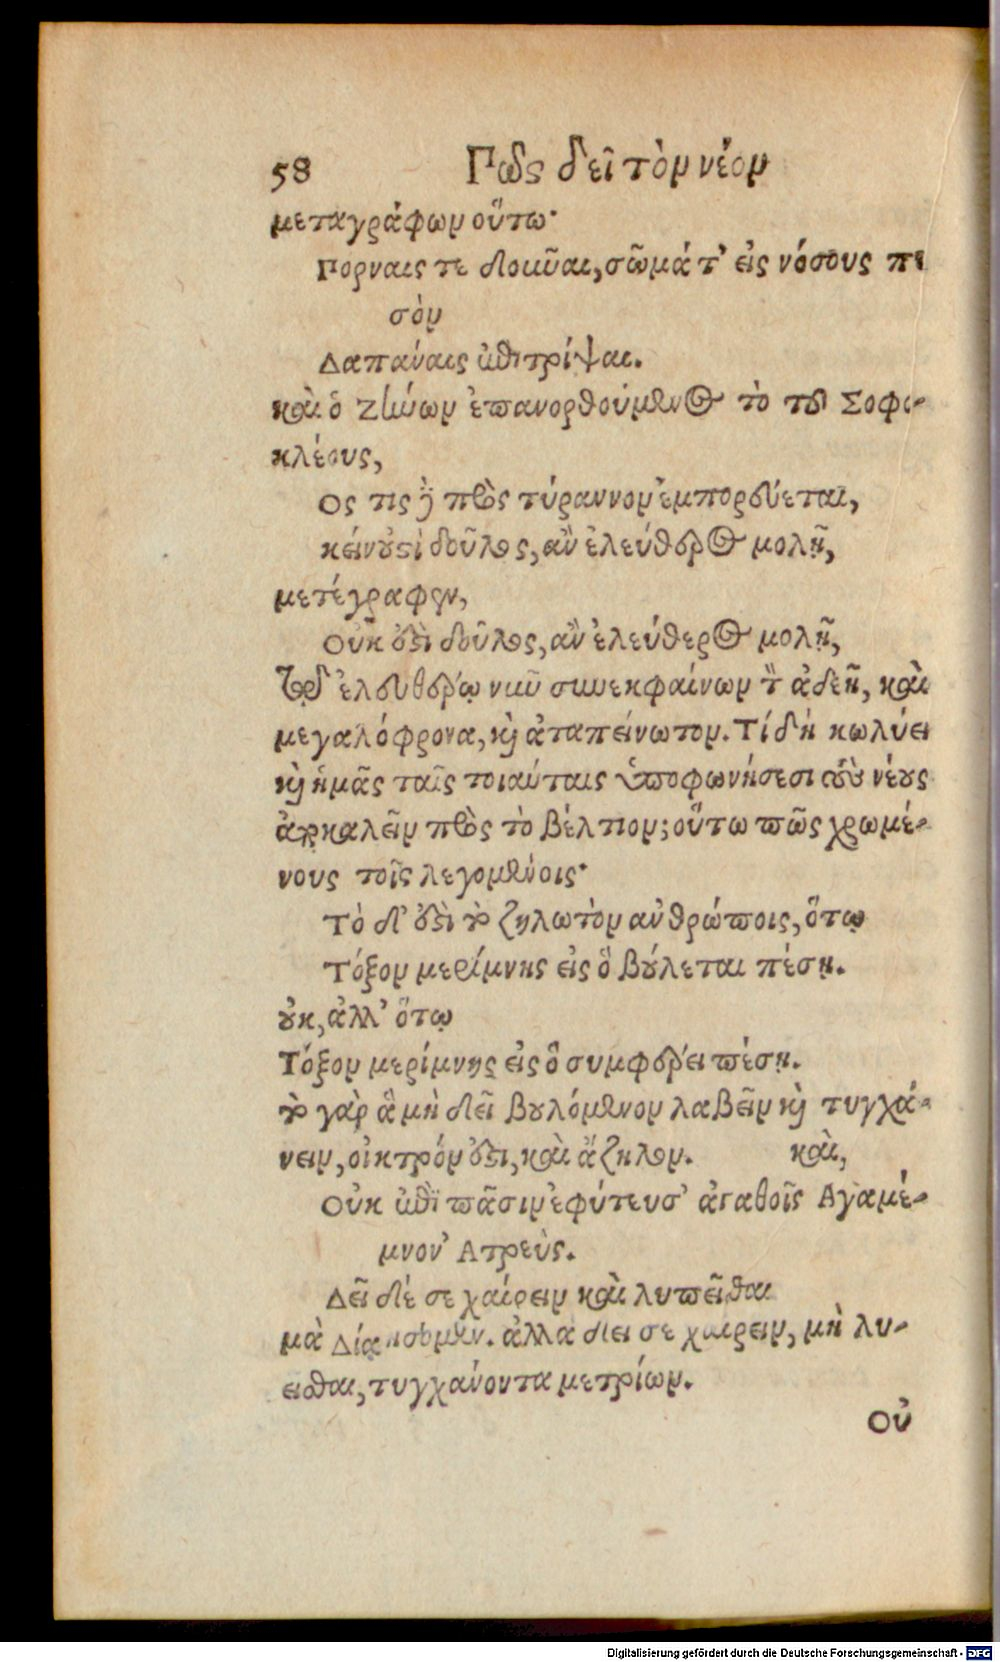 58 Πῶς δεῖ τὸν νέον
μεταγράφων οὕτω·
Πόρναις τε δοῦναι, σῶμά τ' εἰς νόσους πε
σὸν
Δαπάναις ἐπιτρίψαι.
καὶ ὁ Ζήνων ἐπανορθούμενος τὸ τοῦ Σοφο-
κλέους,
Ος τις δὲ πρὸς τύραννον ἐμπορεύεται,
κείνου ἐστὶ δοῦλος, ἂν ἐλεύθερος μολῇ,
μετέγραφεν,
Οὐκ ἐστὶ δοῦλος, ἂν ἐλεύθερος μολῇ,
τῷ δ' ἐλευθέρῳ νῦν συνεκφαίνων τὸν ἀδεῆ, καὶ
μεγαλόφρονα, καὶ ἀταπείνωτον. Τί δὴ κωλύει
καὶ ἡμᾶς ταῖς τοιαύταις ὑποφωνήσεσι τοὺς νέους
παρακαλεῖν πρὸς τὸ βέλτιον; οὕτω πῶς χρωμέ-
νους τοῖς λεγομένοις·
Τὸ δ' ἐστὶ τὸ ζηλωτὸν ἀνθρώποις, ὅτῳ
Τόξον μερίμνης εἰς ὃ βούλεται πέσῃ.
οὐκ, ἀλλ' ὅτῳ
Τόξον μερίμνης εἰς ὃ συμφέρει πέσῃ.
τὸ γὰρ ἃ μὴ δεῖ βουλόμενον λαβεῖν καὶ τυγχά-
νειν, οἰκτρόν ἐστι, καὶ ἄζηλον. καὶ,
Οὐκ ἐπὶ πᾶσιν ἐφύτευσ' ἀγαθοῖς Αγαμέ-
μνον' Ατρεὺς.
Δεῖ δέ σε χαίρειν καὶ λυπεῖσθαι
μὰ Δία ήσομεν. ἀλλὰ δεῖ σε χαίρειν, μὴ λυ-
εισθαι, τυγχάνοντα μετρίων.
Οὐ
Digitalisierung gefördert durch die Deutsche Forschungsgemeinschaft - DFG